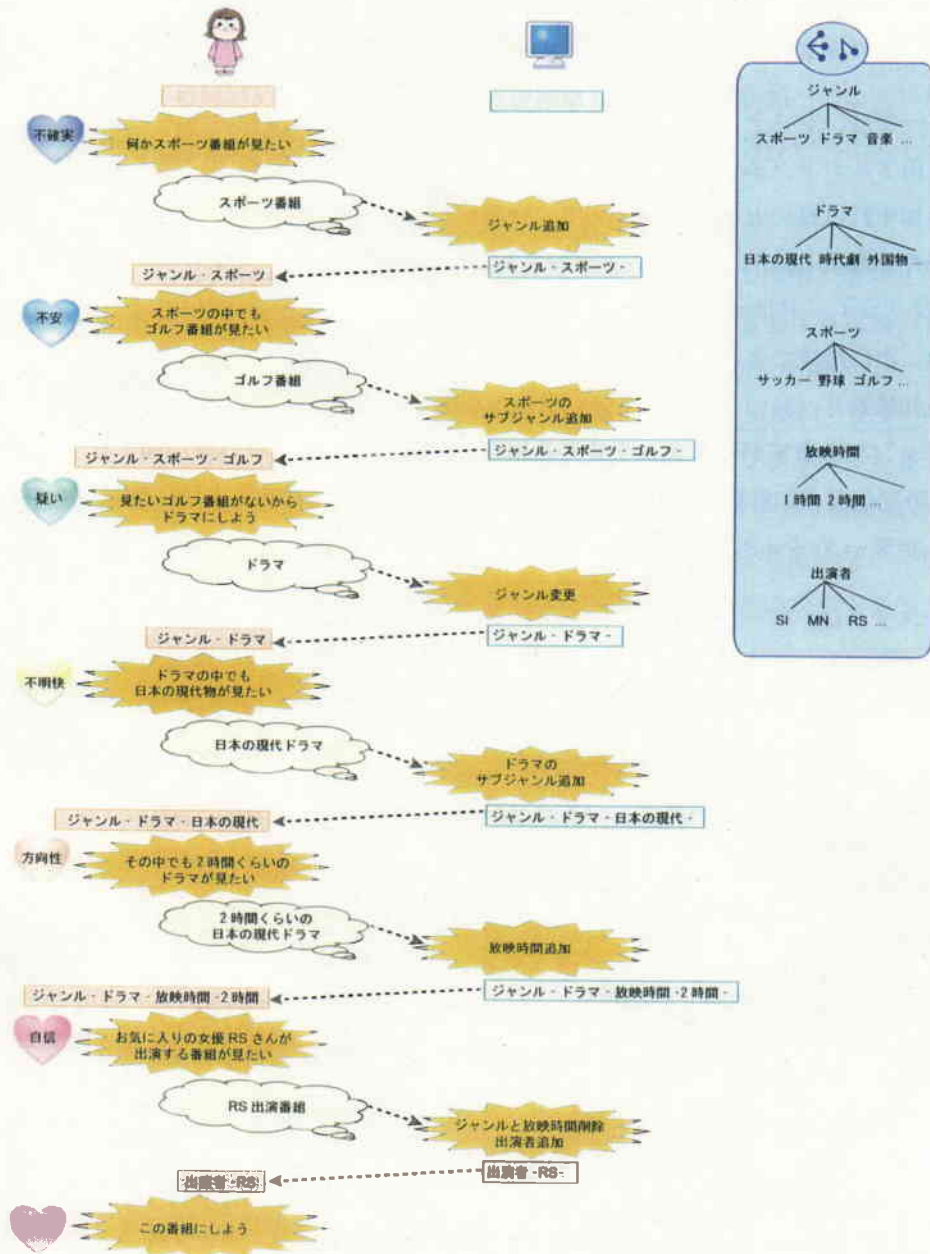 不確実
何かスポーツ番組が見たい
スポーツ番組
ジャンル追加
ジャンル・スポーツ・
ジャンル・スポーツ
不安
スポーツの中でも
ゴルフ番組が見たい
ゴルフ番組
スポーツの
サブジャンル追加
ジャンル・スポーツ・ゴルフ・
ジャンル・スポーツ・ゴルフ
疑い
見たいゴルフ番組がないから
ドラマにしよう
ドラマ
ジャンル変更
ジャンル・ドラマ・
ジャンル・ドラマ
不明快
ドラマの中でも
日本の現代物が見たい
日本の現代ドラマ
ドラマの
サブジャンル追加
ジャンル・ドラマ・日本の現代・
ジャンル・ドラマ・日本の現代
方向性
その中でも2時間くらいの
ドラマが見たい
2時間くらいの
日本の現代ドラマ
放映時間追加
ジャンル・ドラマ・放映時間・2時間・
ジャンル・ドラマ・放映時間・2時間
自信
お気に入りの女優RSさんが
出演する番組が見たい
RS出演番組
ジャンルと放映時間削除
出演者追加
出演者・RS・
出演者・RS
この番組にしよう
ジャンル
スポーツ ドラマ 音楽 …
ドラマ
日本の現代 時代劇 外国物 …
スポーツ
サッカー 野球 ゴルフ …
放映時間
1時間 2時間 …
出演者
SI MN RS …